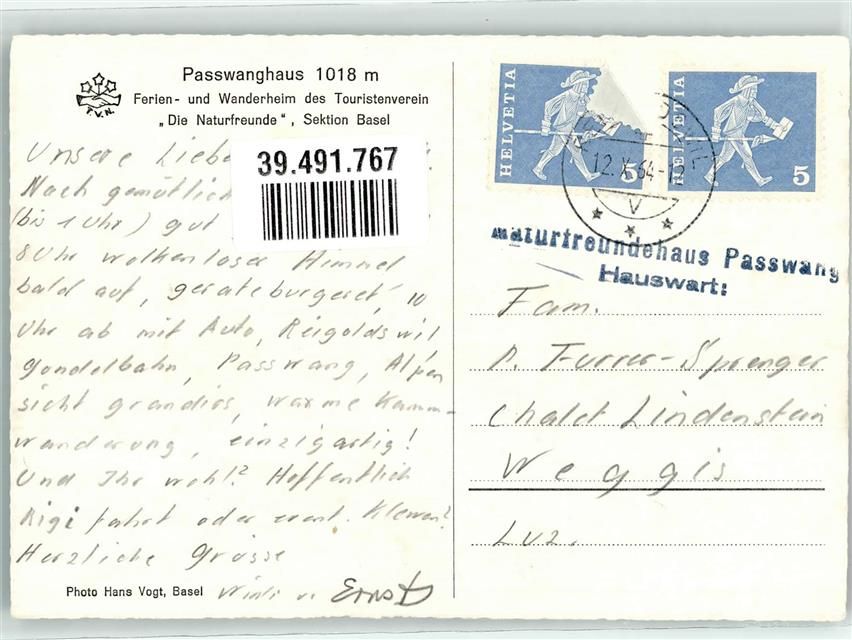 Passwanghaus 1018 m
Ferien- und Wanderheim des Touristenverein
„Die Naturfreunde", Sektion Basel
T.V.N.
39.491.767
Unsere Liebe
Nach gemütlich
(bis 1 Uhr) gut
8 Uhr wolkenloser Himmel
bald auf, 10
Uhr ab mit Auto, Reigoldswil
Gondelbahn, Passwang, Alpen
sicht grandios, warme Kamm-
wanderung, einzigartig!
Und Ihr wohl? Hoffentlich
Rigi fahrt oder event.
Herzliche Grüsse
Ernst
Photo Hans Vogt, Basel
HELVETIA
5
HELVETIA
5
12.X.64-12
V
Naturfreundehaus Passwang
Hauswart:
Fam.
P. Furrer-Sprenger
Chalet Lindenstein
Weggis
Luz.